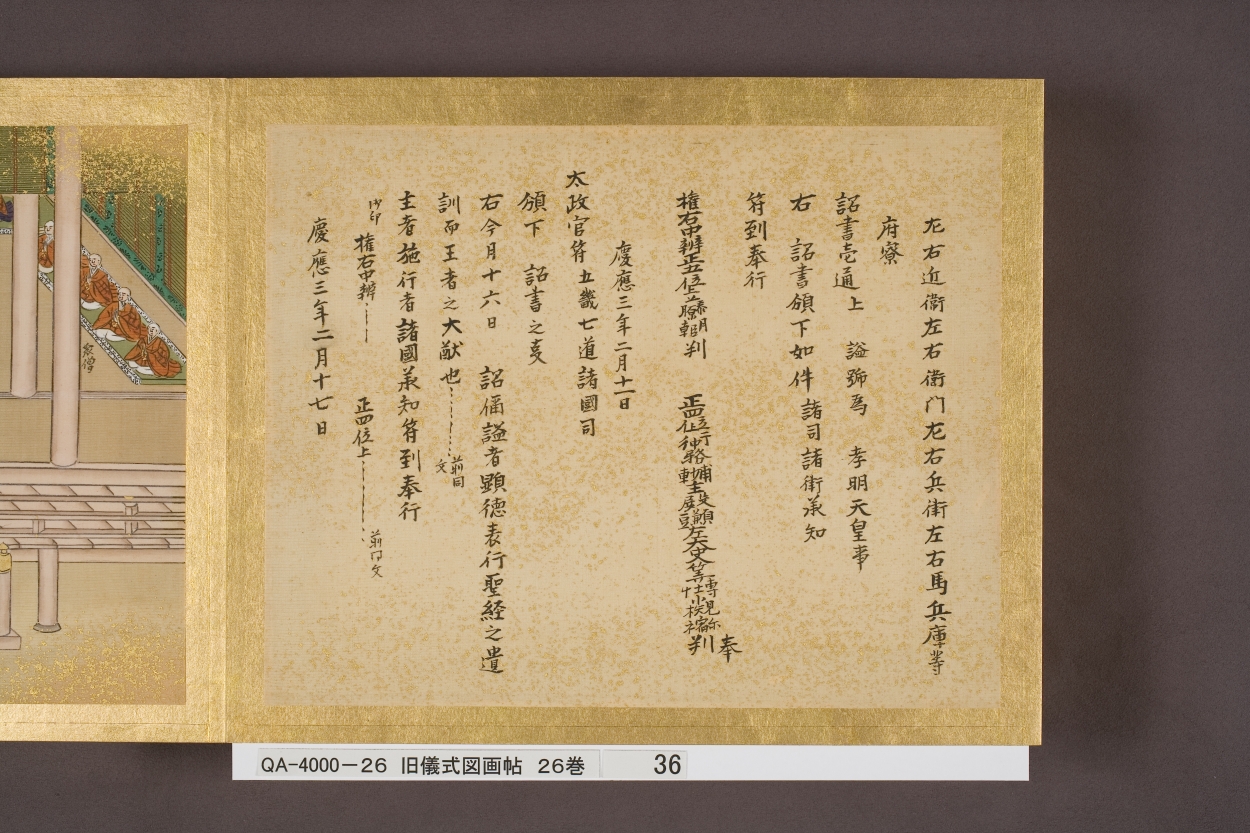 左右近衛左右衛門左右兵衛左右馬兵庫等
府寮
詔書壱通上 謚號為 孝明天皇事
右 詔書頒下如件諸司諸衛承知
符到奉行
權右中辨正五位上藤原朝 判 正四位 左大史 判
奉
慶應三年二月十一日
太政官符五畿七道諸國司
頒下 詔書之叓
右今月十六日 詔偁謚者顯德表行聖経之遺
訓而王者之大猷也 前同文
主者施行者諸國承知符到奉行
權右中辨 正四位上 前同文
慶應三年二月十七日
衆僧
QA-4000-26 旧儀式図画帖 26巻 36